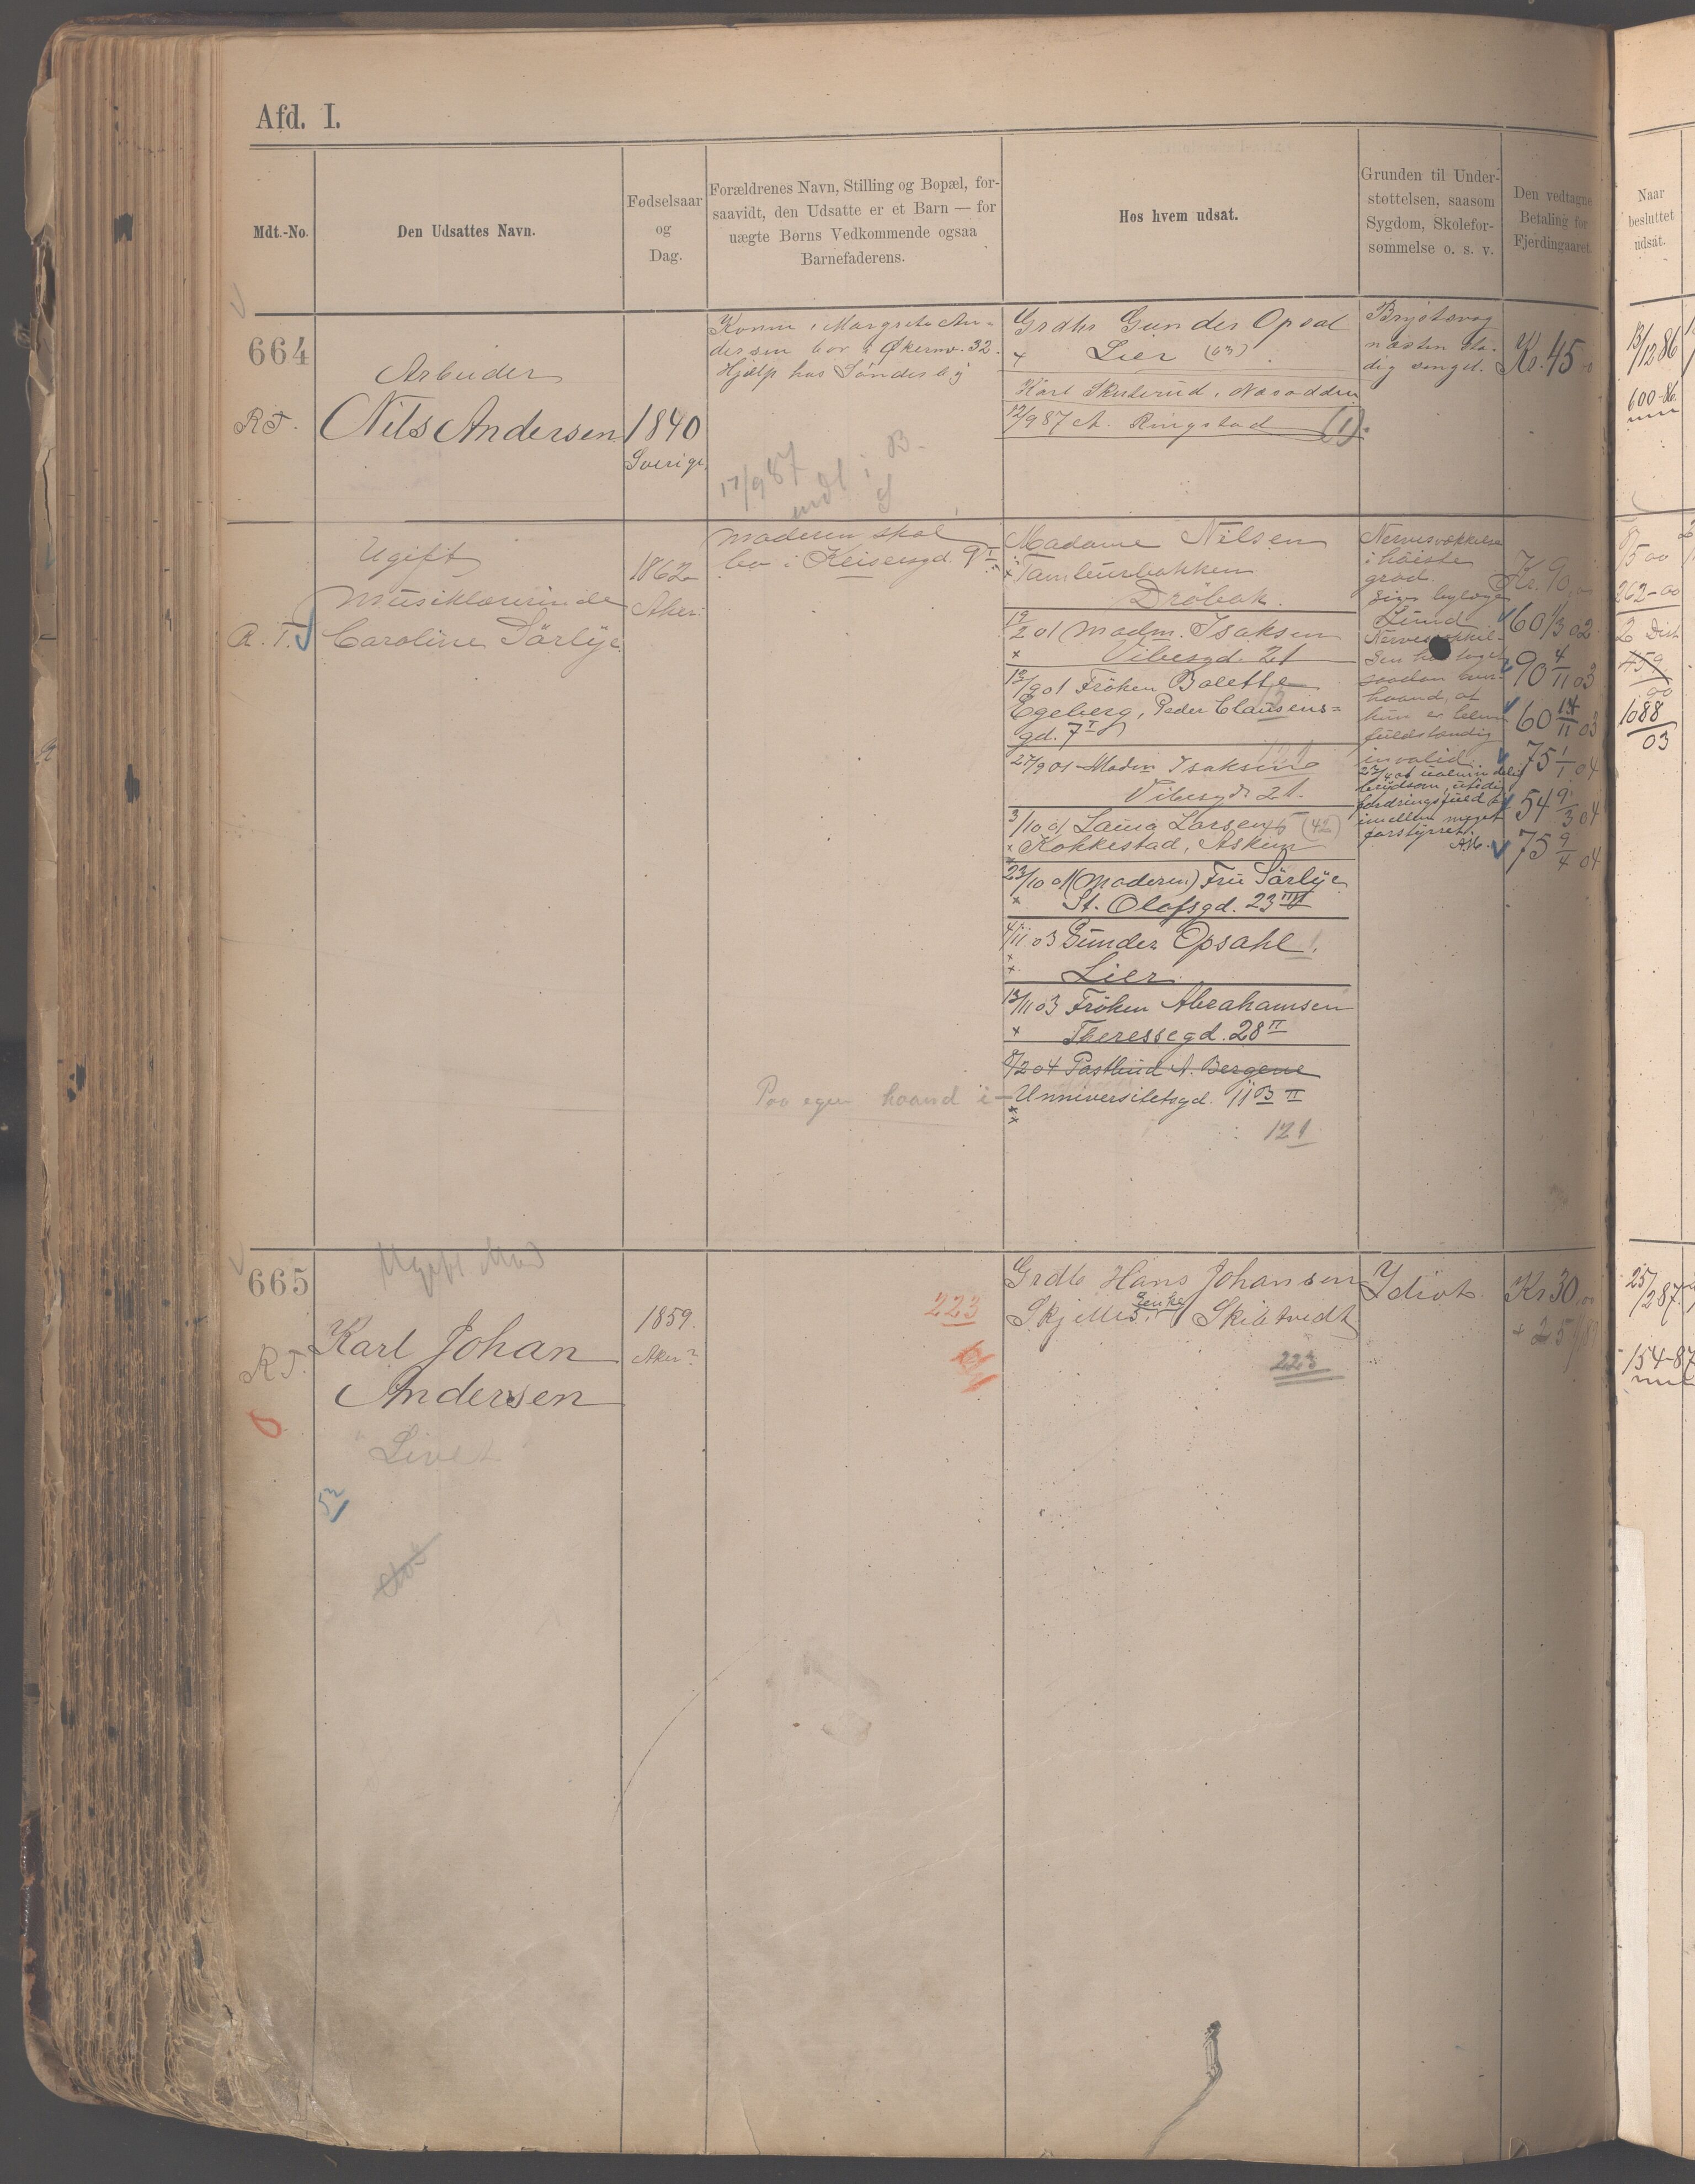 Afd. I.
Mdt.-No.
Den Udsattes Navn.
Fødselsaar
og
Dag.
Forældrenes Navn, Stilling og Bopæl, for-
saavidt, den Udsatte er et Barn — for
uægte Børns Vedkommende ogsaa
Barnefaderens.
Hos hvem udsat.
Grunden til Under-
støttelsen, saasom
Sygdom, Skolefor-
sømmelse o. s. v.
Den vedtagne
Betaling for
Fjerdingaaret.
Naar
besluttet
udsat.
664
RT.
Arbeider
Nils Andersen
1840
Sverige
Konen, Margrete An-
dersen bor i Økernv. 32.
Hjælp hos Sønderby
17/9 87
indl i B.
Grdbr Gunder Opsal
Lier (63)
Karl Skuterud, Næsodden
12/9 87 A. Ringstad (1)
Brystsvag
næsten sta-
dig sengel.
Kr. 45
13/12 86
600-86
R. T.
Ugift
Musiklærerinde
Caroline Sörlye
1862
Aker.
Moderen skal
bo i Keisersgd. 9 I
Madame Nilsen
Tamburbakken
Dröbak.
19/2 01 Madm. Isaksen
Vibesgd. 21
12/9 01 Fröken Bolette
Egeberg, Peder Clausens=
gd. 7 I
27/9 01 Madm Isaksen
Vibesgd. 21.
3/10 01 Laura Larsen (42)
Kokkestad, Askim
23/10 01 (Moderen) Fru Sörlye
St. Olafsgd. 23 III
4/11 03 Gunder Opsahl.
Lier.
13/11 03 Fröken Abrahamsen
Theressegd. 28 II
8/2 04 Postbud A. Bergene
Paa egen haand i — Unniversitetsgd. 11 B II
121
Nervesvækkelse
i höieste
grad.
Lund
Nervesvækkel-
sen har taget
saadan over-
haand, at
hun er bleven
fuldstændig
invalid.
fordringsfuld
imellem meget
forstyrret.
Kr. 90,00
60 1/3 02
90 4/11 03
60 14/11 03
75 1/1 04
54 9/3 04
75 9/4 04
8/5 00
262-00
2 Dist
459/00
1088/03
665
RT.
Ugift Mand
Karl Johan
Andersen
1859.
Aker?
223
Grdb Hans Johansen
Skjelles Enke, Skibtvedt
223
Idiot
Kr 30,00
25/2 87.
154-87